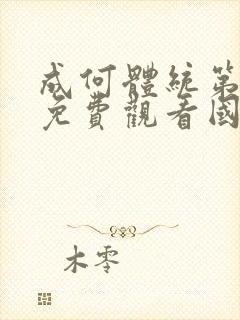 成何體統第
免費觀看國
木零